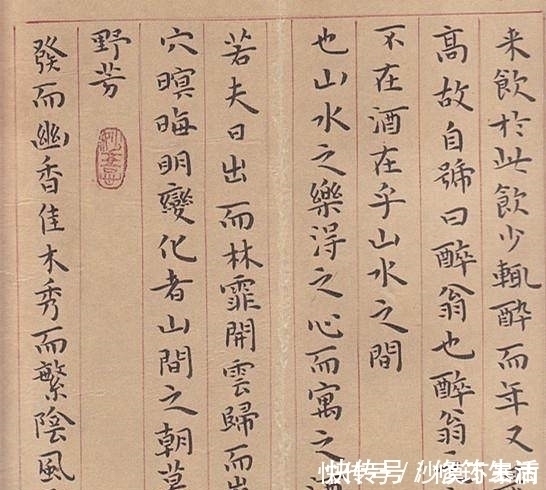 来飲於此飲少輒醉而年又
高故自號曰醉翁也醉翁
不在酒在乎山水之間
也山水之樂淂之心而寓之
若夫日出而林霏開雲歸而
穴暝晦明變化者山間之朝
野芳
發而幽香佳木秀而繁陰風